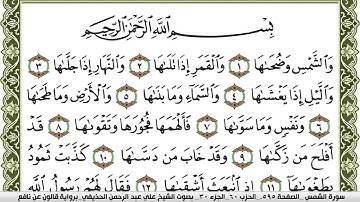 بِسْمِ اللَّهِ الرَّحْمَٰنِ الرَّحِيمِ
وَالشَّمْسِ وَضُحَىٰهَا ١ وَالْقَمَرِ إِذَا تَلَىٰهَا ٢ وَالنَّهَارِ إِذَا جَلَّىٰهَا ٣
وَالَّيْلِ إِذَا يَغْشَىٰهَا ٤ وَالسَّمَآءِ وَمَا بَنَىٰهَا ٥ وَالْأَرْضِ وَمَا طَحَىٰهَا
٦ وَنَفْسٍ وَمَا سَوَّىٰهَا ٧ فَأَلْهَمَهَا فُجُورَهَا وَتَقْوَىٰهَا ٨ قَدْ
أَفْلَحَ مَن زَكَّىٰهَا ٩ وَقَدْ خَابَ مَن دَسَّىٰهَا ١٠ كَذَّبَتْ ثَمُودُ
بِطَغْوَىٰهَا ١١ إِذِ انۢبَعَثَ أَشْقَىٰهَا ١٢ فَقَالَ لَهُمْ رَسُولُ اللَّهِ
سورة الشمس . الصفحة ٥٩٥ . الحزب ٦٠ . الجزء ٣٠ . بصوت الشيخ علي عبد الرحمن الحذيفي . برواية قالون عن نافع